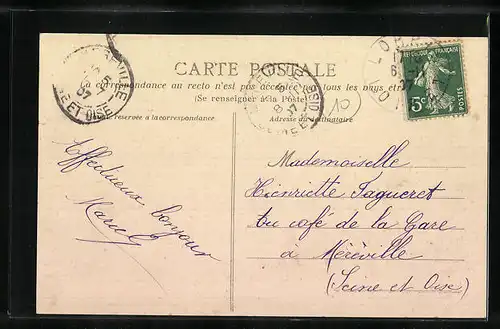 CARTE POSTALE
La correspondance au recto n'est pas acceptée par tous les pays étrangers
(Se renseigner à la Poste)
réservée à la correspondance
Adresse du destinataire
5c
10
ET OISE
Affectueux bonjour
Marie
Mademoiselle
Henriette Tagueret
au café de la Gare
à Méréville
(Seine et Oise)